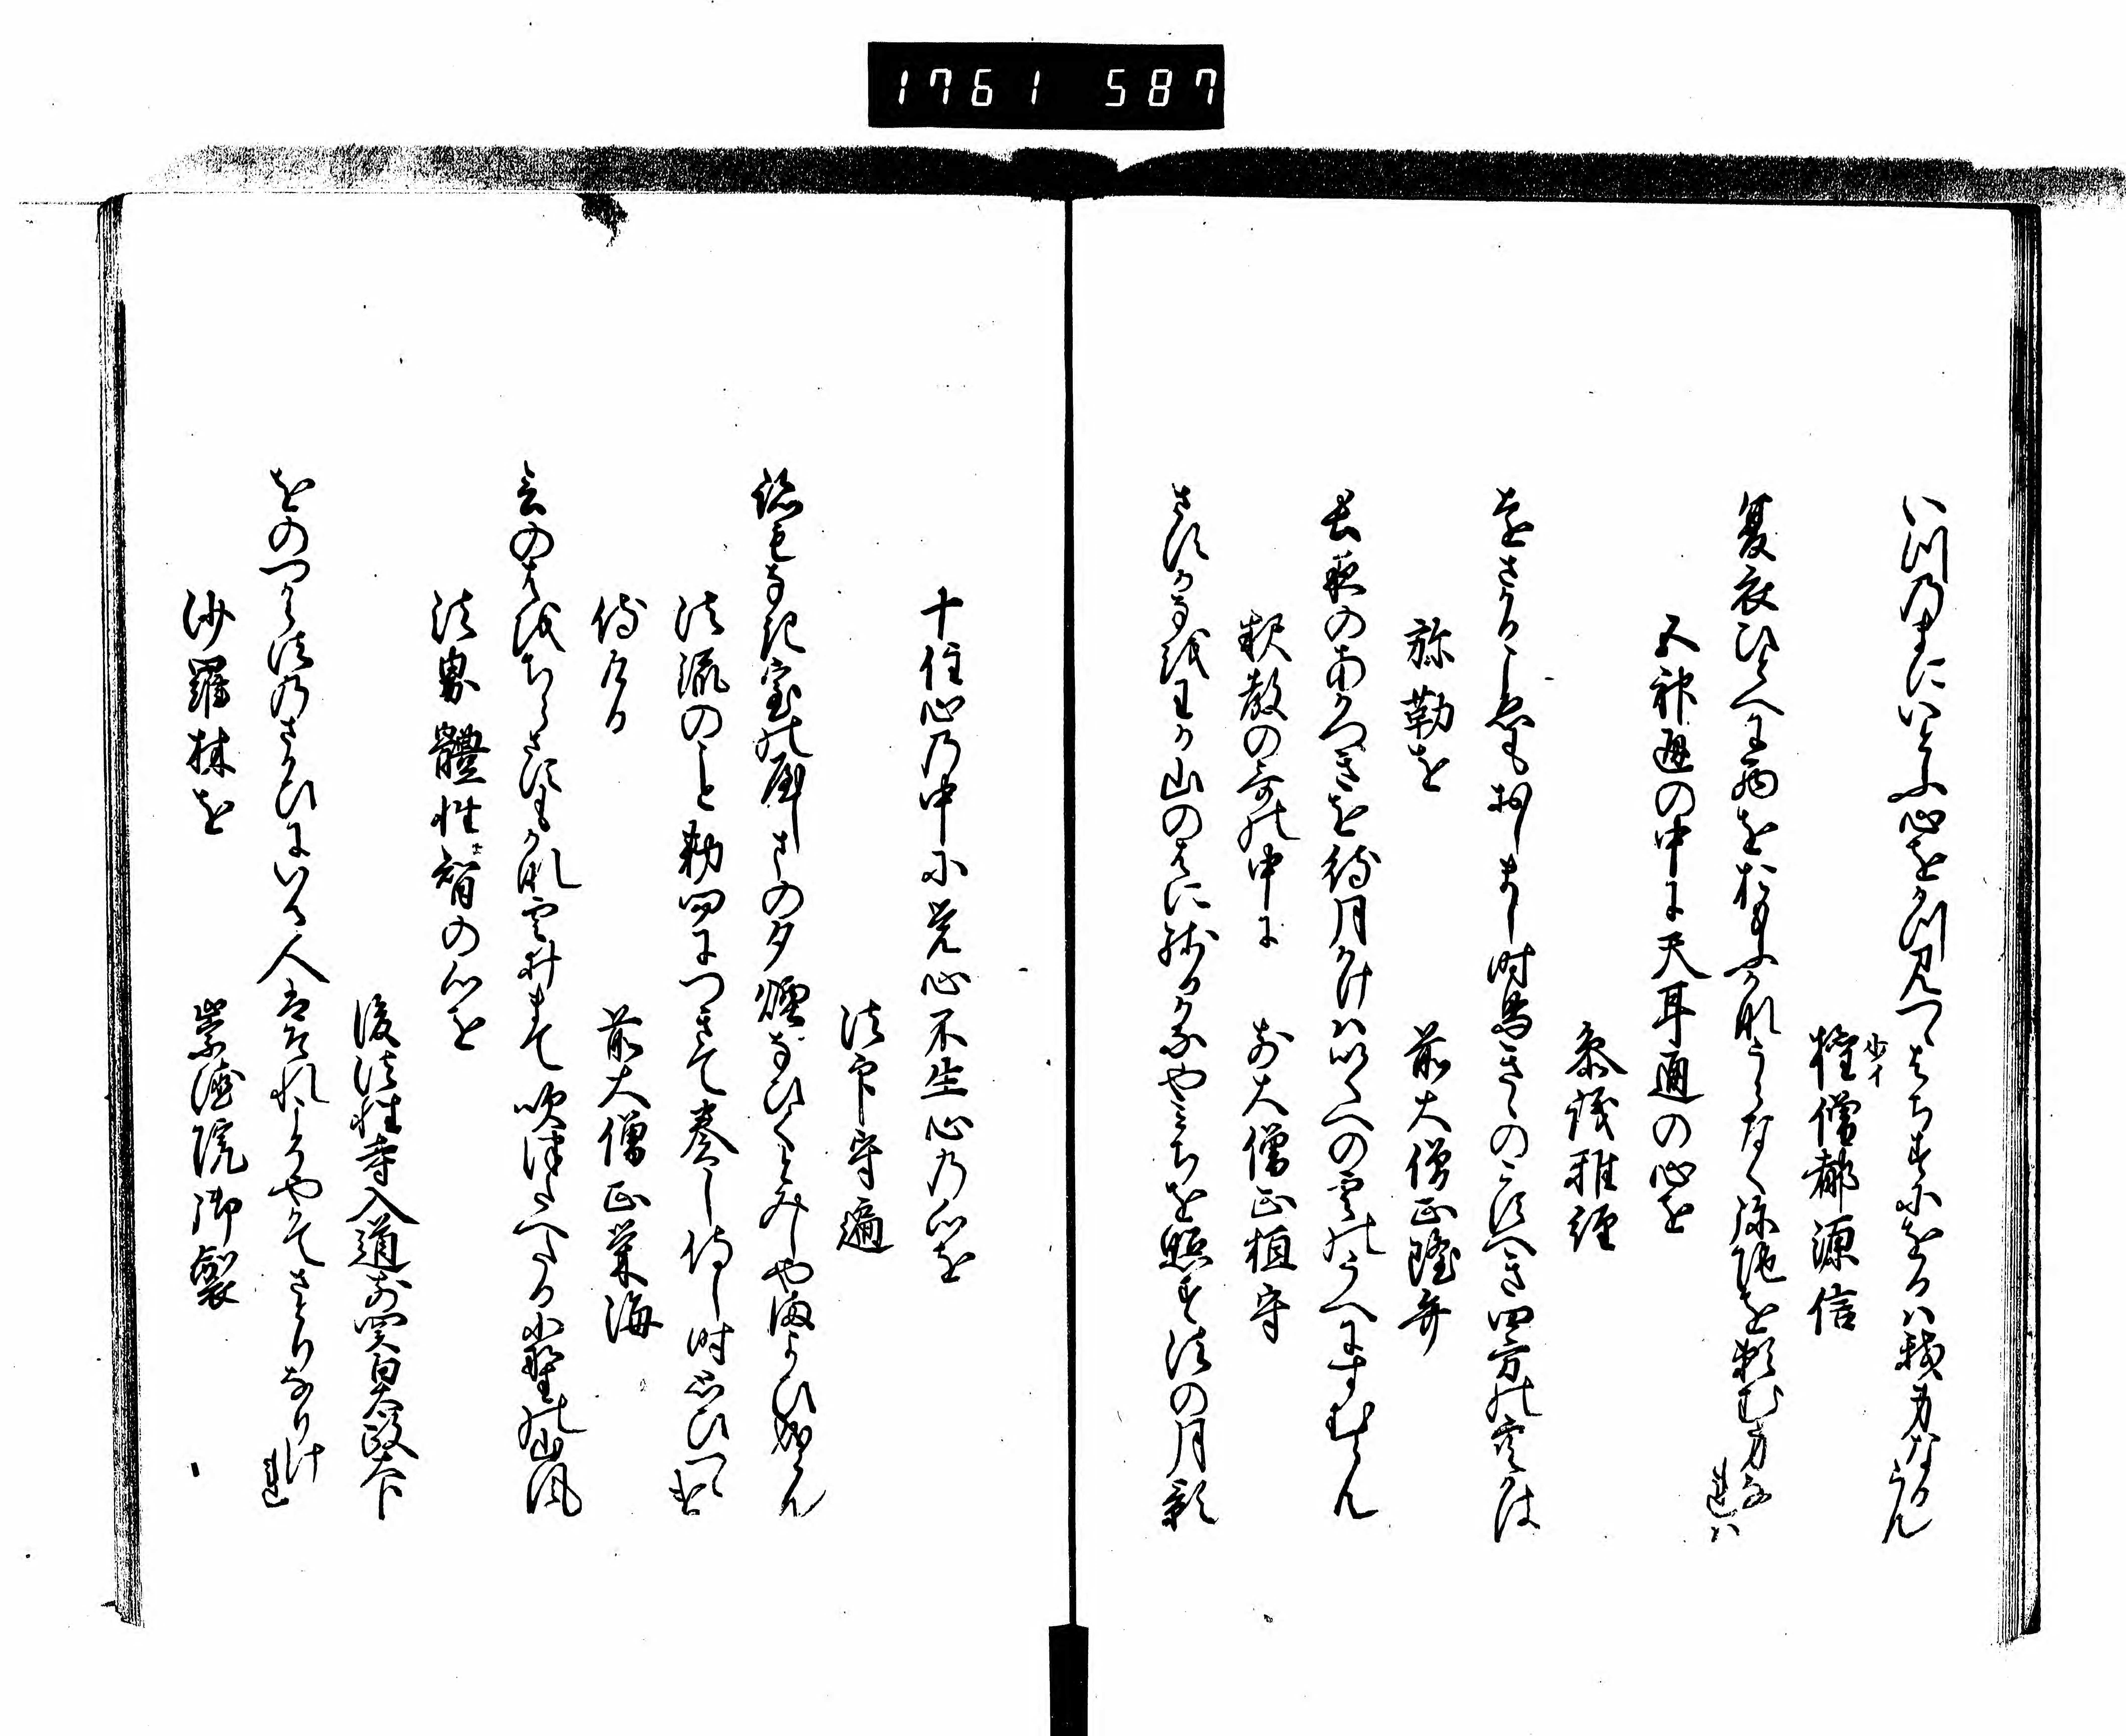 1761 587
いつのまにいとふ心をかつ見つゝはちすにをるは我身なるらん
少イ
権僧都源信
夏衣ひとへに西をおもふかなうらなく弥陀を頼む身なれは
五神通の中に天耳通の心を
参議雅経
をさかこゑも
時鳥きゝのこすへき四方の空かは
弥勒を
前大僧正隆弁
長夜のあかつきを待月かけはいくへの雲のうへにすむらん
釈教の哥の中に
前大僧正桓守
山のはに残るかやみちを照す法の月影
十住心の中に覚心不生心の心を
法印守遍
室の
の夕煙なひくとみしやまよひなるらん
法流のこと勅問につきて奏し侍し時思ひつゝけ
侍ける
前大僧正栄海
言のはをちらさすもかな雲井まて吹つたへたる小野の山風
法界体性智の心を
後法性寺入道前関白太政大臣
をのつから法のさかひにいる人はそれこそやかてさとりなりけれ
沙羅林を
崇徳院御製